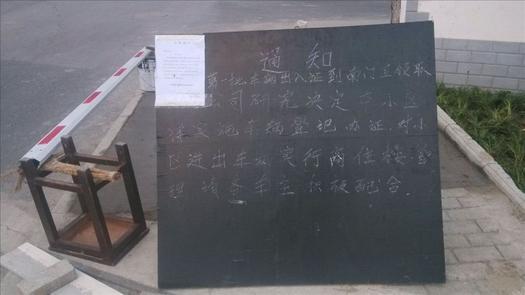 通知
第一批车辆出入证到南门卫领取
公司研究决定于小区
实施车辆登记,办证,对小
区进出车辆实行
理 请各车主积极配合.